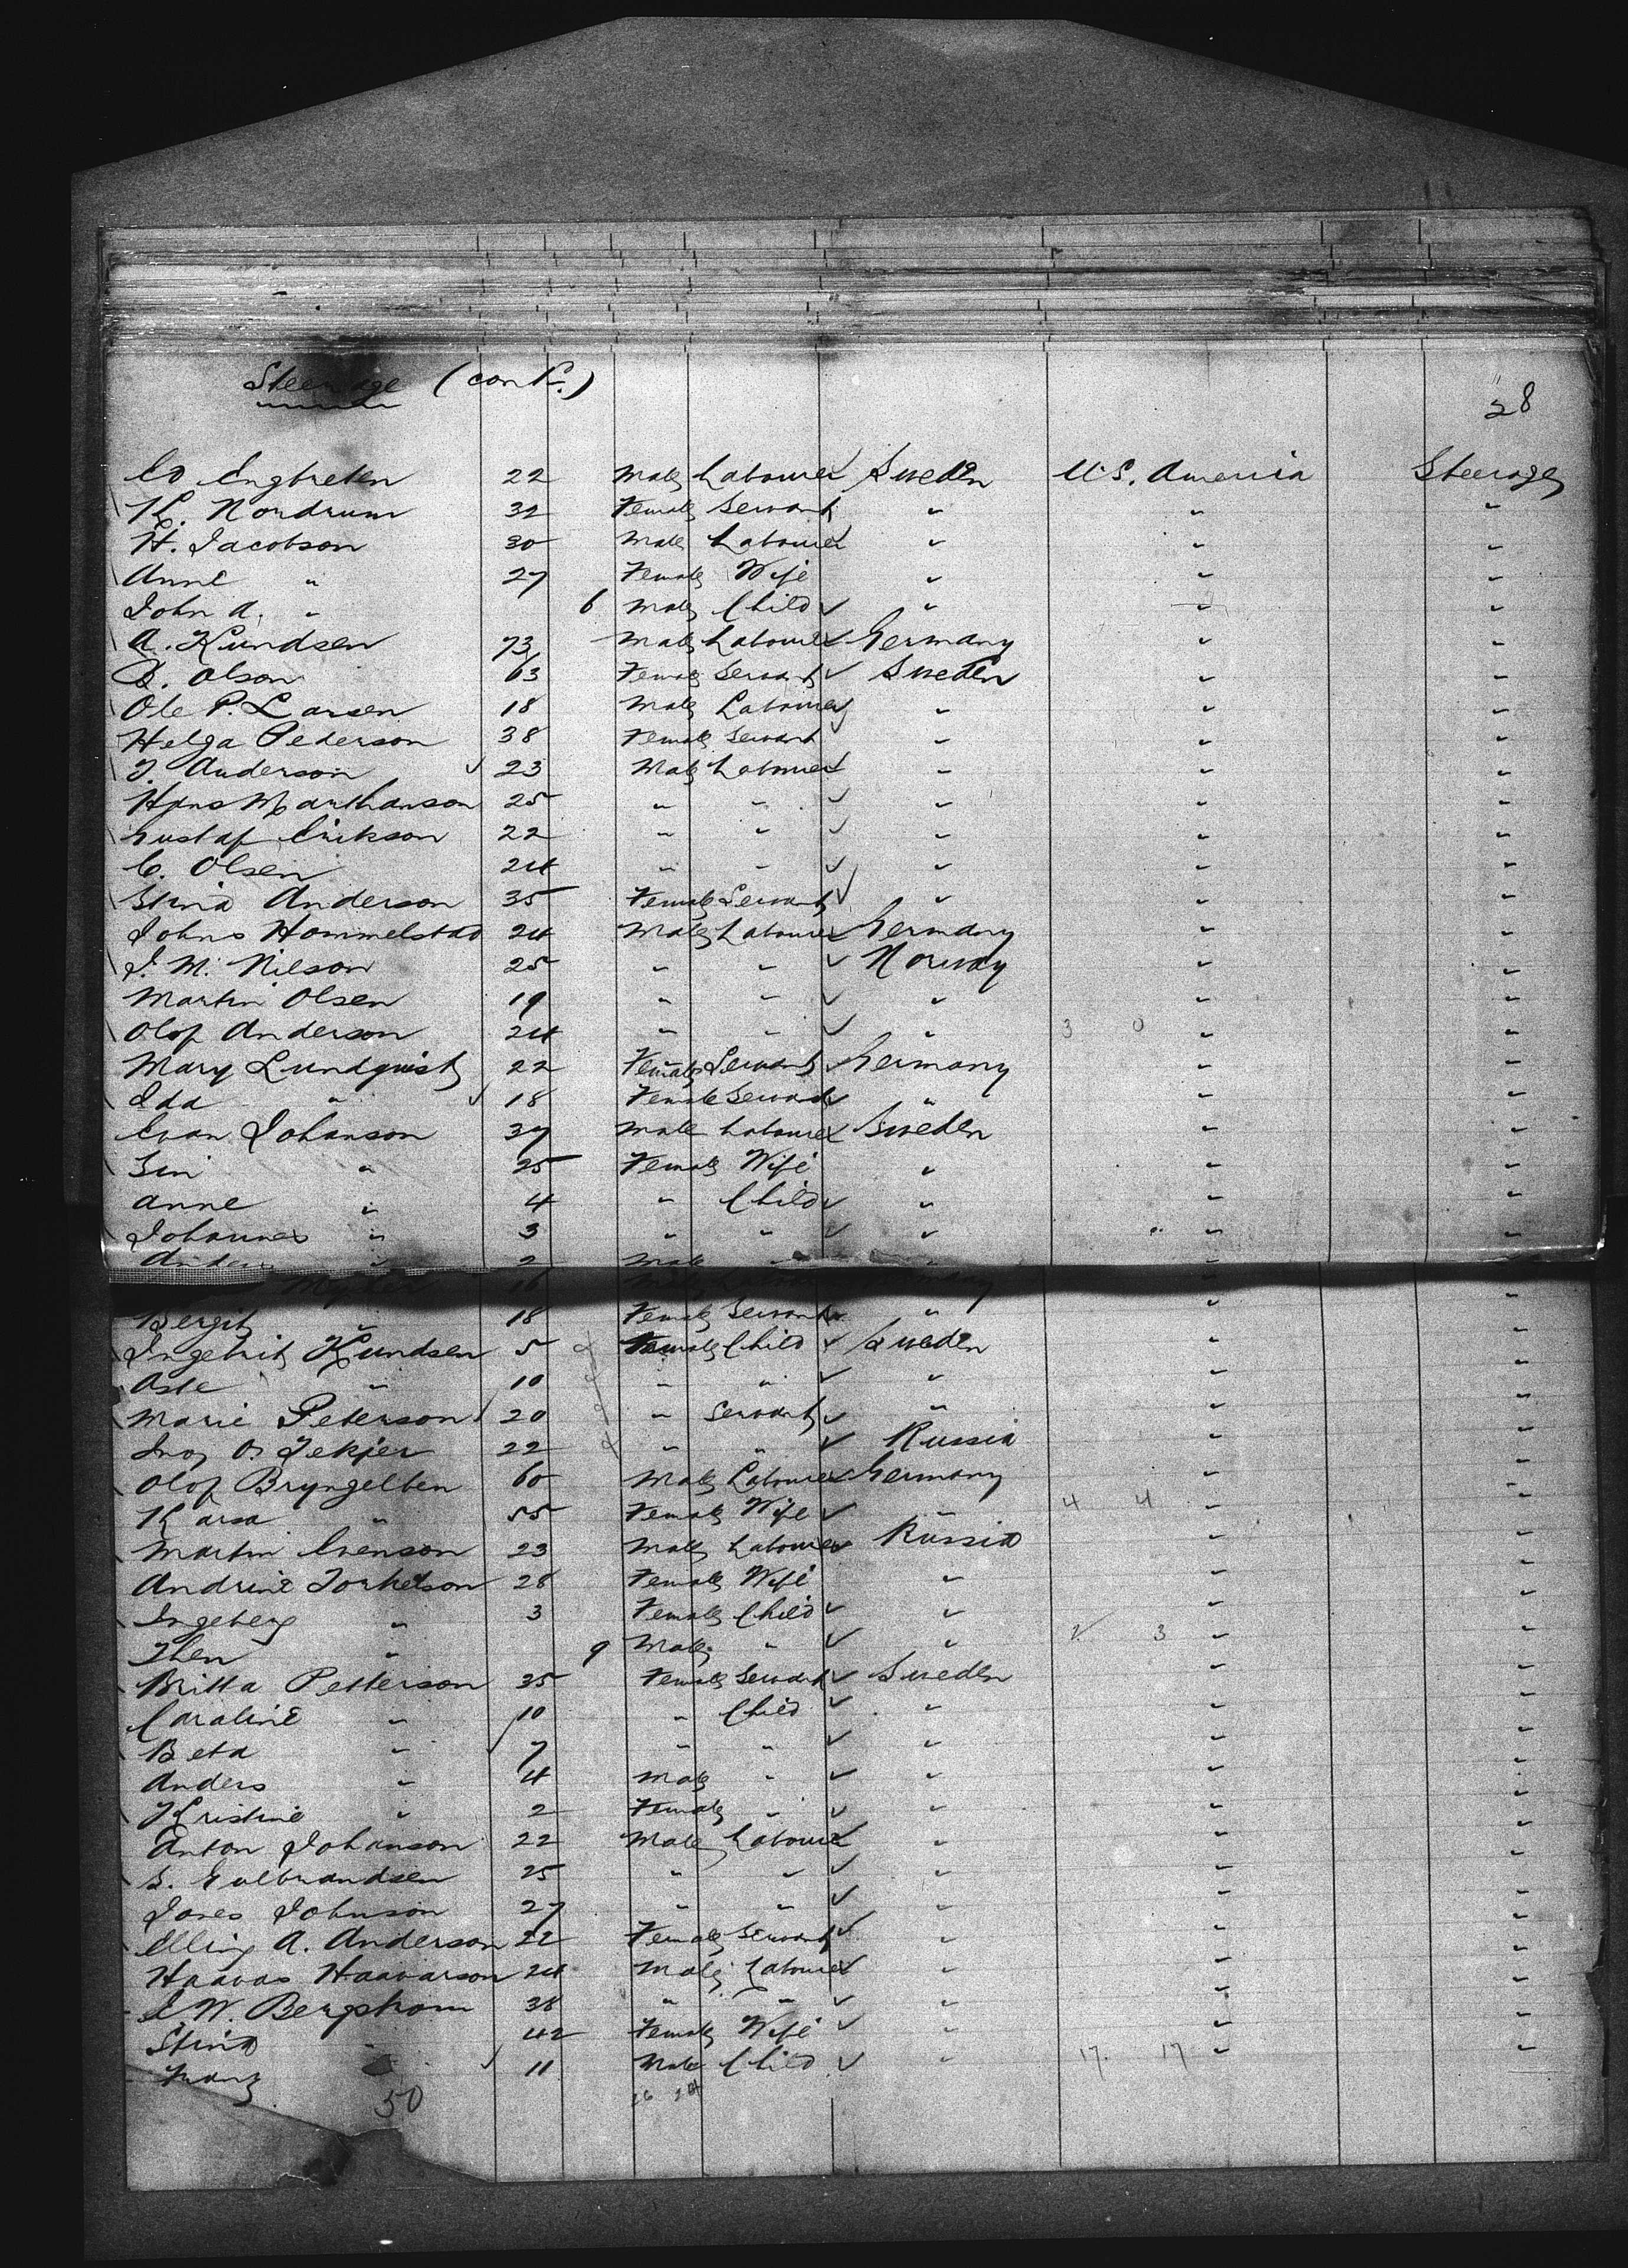 Steerage (cont.)
28
Ed Engbreten 22 Male Labourer Sweden U.S. America Steerage
K. Nordrum 32 Female Servant " " "
H. Jacobson 30 Male Labourer " " "
Anne " 27 Female Wife " " "
John A. " 6 Male Child " " "
A. Kundsen 73 Male Labourer Germany " "
B. Olson 63 Female Servant Sweden " "
Ole P. Larsen 18 Male Labourer " " "
Helga Pederson 38 Female Servant " " "
J. Anderson 23 Male Labourer " " "
Hans Marthanson 25 " " " " "
Gustaf Erikson 22 " " " " "
C. Olsen 24 " " " " "
Stina Anderson 35 Female Servant " " "
Johns Hommelstad 24 Male Labourer Germany " "
J. M. Nilson 25 " " Norway " "
Martin Olsen 19 " " " " "
Olof Anderson 24 " " " 3 0 " "
Mary Lundquist 22 Female Servant Germany " "
Ida " 18 Female Servant " " "
Evan Johanson 37 Male Labourer Sweden " "
Siri " 25 Female Wife " " "
Anne " 4 " Child " " "
Johannes " 3 " " " " "
Anders " 2 Male " "
16 Male Labourer
Bergit " 18 Female Servant " " "
Ingebrit Kundsen 5 Female Child Sweden " "
Aste " 10 " " " " "
Marie Peterson 20 " Servant " " "
O. Tekjer 22 " " Russia " "
Olof Bryngelben 60 Male Labourer Germany " "
Karsa " 55 Female Wife " 4 4 " "
Martin Evenson 23 Male Labourer Russia " "
Andrine Torkelson 28 Female Wife " " "
Ingeberg " 3 Female Child " " "
Then " 9 Male " " 2 3 " "
Britta Petterson 35 Female Servant Sweden " "
Caroline " 10 " Child " " "
Beta " 7 " " " " "
Anders " 4 Male " " " "
Kristine " 2 Female " " " "
Anton Johanson 22 Male Labourer " " "
S. Gulbrandsen 25 " " " " "
Jones Johnson 27 " " " " "
Elling A. Anderson 22 Female Servant " " "
Haavas Haavarson 24 Male Labourer " " "
J. W. Bergstrom 38 " " " " "
Stina " 42 Female Wife " " "
Franz " 11 Male Child " 17. 17 " "
50 26 24